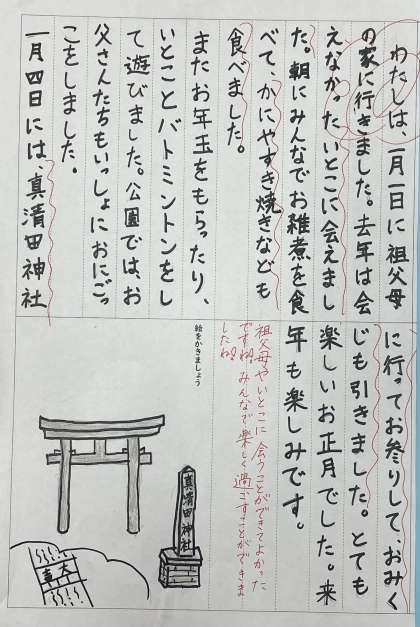 わたしは、一月一日に祖父母
の家に行きました。去年は会
えなかったいとこに会えまし
た。朝にみんなでお雑煮を食
べて、かにやすき焼きなども
食べました。
またお年玉をもらったり、
いとことバトミントンをし
て遊びました。公園では、お
父さんたちもいっしょにおにごっ
こをしました。
一月四日には、真清田神社
に行ってお参りして、おみく
じも引きました。とても
楽しいお正月でした。来
年も楽しみです。
祖父母やいとこに会うことができてよかった
ですね。みんなで楽しく過ごすことができま
したね。
絵をかきましょう
真清田神社
大吉